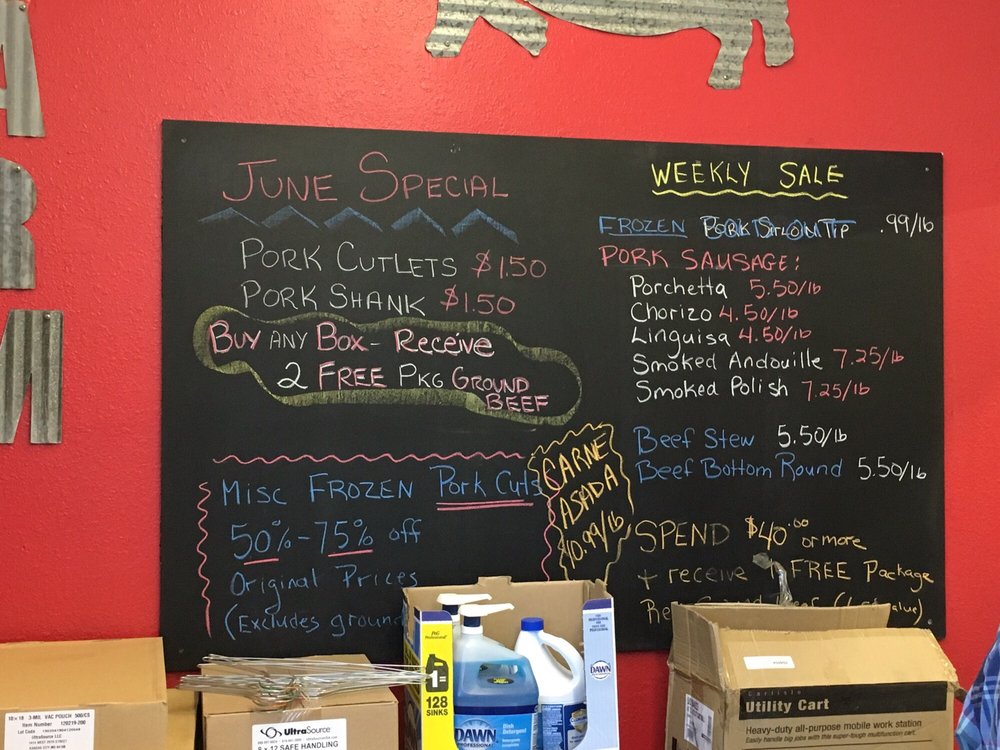 A
R
M
JUNE SPECIAL
PORK CUTLETS $1.50
PORK SHANK $1.50
BUY ANY BOX - RECEIVE
2 FREE PKG GROUND
BEEF
MISC FROZEN Pork Cuts
50%-75% off
Original Prices
(Excludes ground
CARNE
ASADA
10.99/lb
WEEKLY SALE
FROZEN PORK SIRLOIN TIP .99/lb
PORK SAUSAGE:
Porchetta 5.50/lb
Chorizo 4.50/lb
Linguisa 4.50/lb
Smoked Andouille 7.25/lb
Smoked Polish 7.25/lb
Beef Stew 5.50/lb
Beef Bottom Round 5.50/lb
SPEND $40.00 or more
+ receive 1 FREE Package
value)
10 x 18 3-MIL VAC POUCH 500/CS
Item Number 120219-200
UltraSource LLC
UltraSource
8 x 12 SAFE HANDLING
P&G
1=
128
SINKS
DAWN
PROFESSIONAL
Dish
Detergent
DAWN
Carlisle
Utility Cart
Heavy-duty all-purpose mobile work station
Easily handle big jobs with this super-tough multifunction cart.